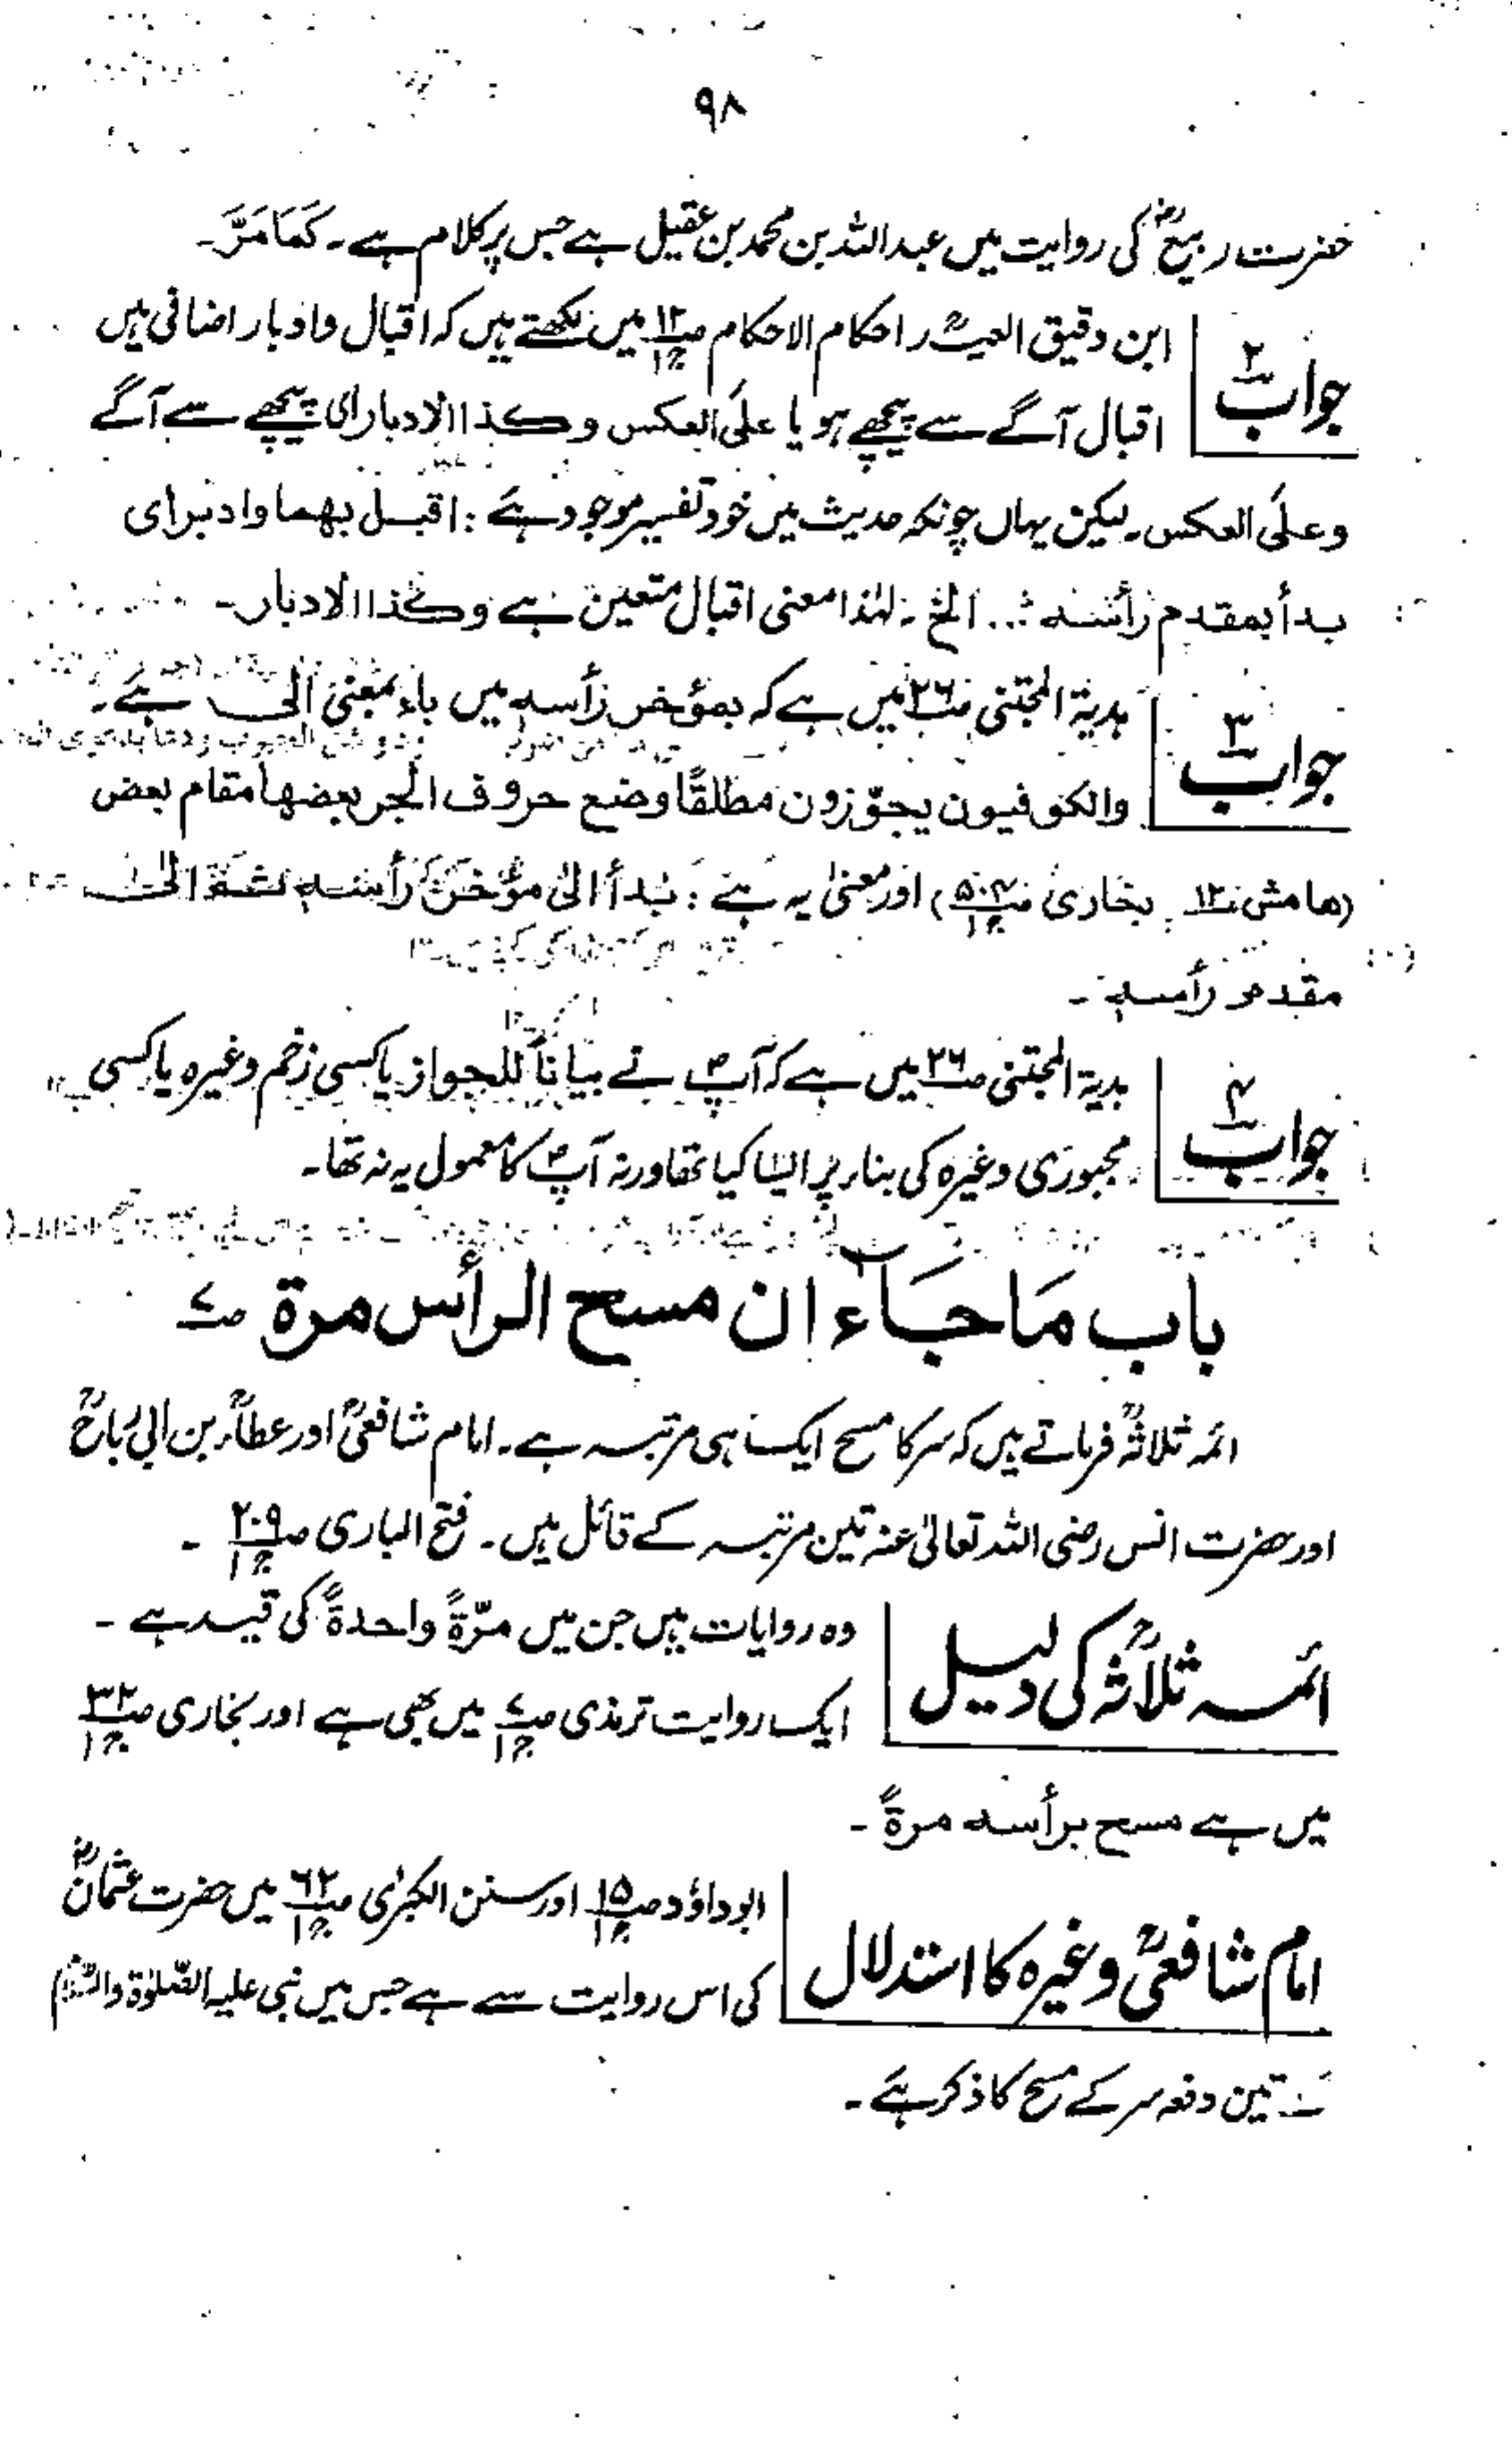 ۹۸
حضرت ربیعؓ کی روایت میں عبداللہ بن محمد بن عقیل ہے جس پر کلام ہے۔ کَمَا مَرَّ۔
جواب ۲
ابن دقیق العیدؒ احکام الاحکام ص۱۲ ج۱ میں لکھتے ہیں کہ اقبال وادبار اضافی ہیں
اقبال آگے سے پیچھے ہو یا علی العکس وکذا الادبار ای پیچھے سے آگے
وعلی العکس۔ لیکن یہاں چونکہ حدیث میں خود تفسیر موجود ہے : اقبل بهما وادبر ای
بدأ بمقدم رأسه ... الخ۔ لہٰذا معنی اقبال متعین ہے وکذا الادبار۔
جواب ۳
ہدیۃ المجتنی ص۲۶ میں ہے کہ بمؤخر رأسه میں باء بمعنی الٰی ہے۔
والکوفیون یجوّزون مطلقًا وضع حروف الجر بعضها مقام بعض
(هامش ۱۲ بخاری ص۵۰۴ ج۱) اور معنیٰ یہ ہے : بدأ الیٰ مؤخر رأسه ثم الیٰ
مقدم رأسه۔
جواب ۴
ہدیۃ المجتنی ص۲۶ میں ہے کہ آپؐ نے بیاناً للجواز یا کسی زخم وغیرہ یا کسی
مجبوری وغیرہ کی بناء پر ایسا کیا تھا ورنہ آپؐ کا معمول یہ نہ تھا۔
باب مَا جَآء ان مسح الرأس مرة ص۷
ائمہ ثلاثہؒ فرماتے ہیں کہ سر کا مسح ایک ہی مرتبہ ہے۔ امام شافعیؒ اور عطاءؒ بن ابی رباحؒ
اور حضرت انس رضی اللہ تعالیٰ عنہ تین مرتبہ کے قائل ہیں۔ فتح الباری ص۲۰۹ ج۱ ۔
ائمہ ثلاثہؒ کی دلیل
وہ روایات ہیں جن میں مرّةً واحدةً کی قید ہے ۔
ایک روایت ترمذی ص۷ ج۱ میں بھی ہے اور بخاری ص۳۲ ج۱
میں ہے مسح برأسه مرةً ۔
امام شافعیؒ وغیرہ کا استدلال
ابوداؤد ص۱۵ ج۱ اور سنن الکبریٰ ص۶۲ ج۱ میں حضرت عثمانؓ
کی اس روایت سے ہے جس میں نبی علیہ الصّلوٰة والسّلام
سے تین دفعہ سر کے مسح کا ذکر ہے ۔